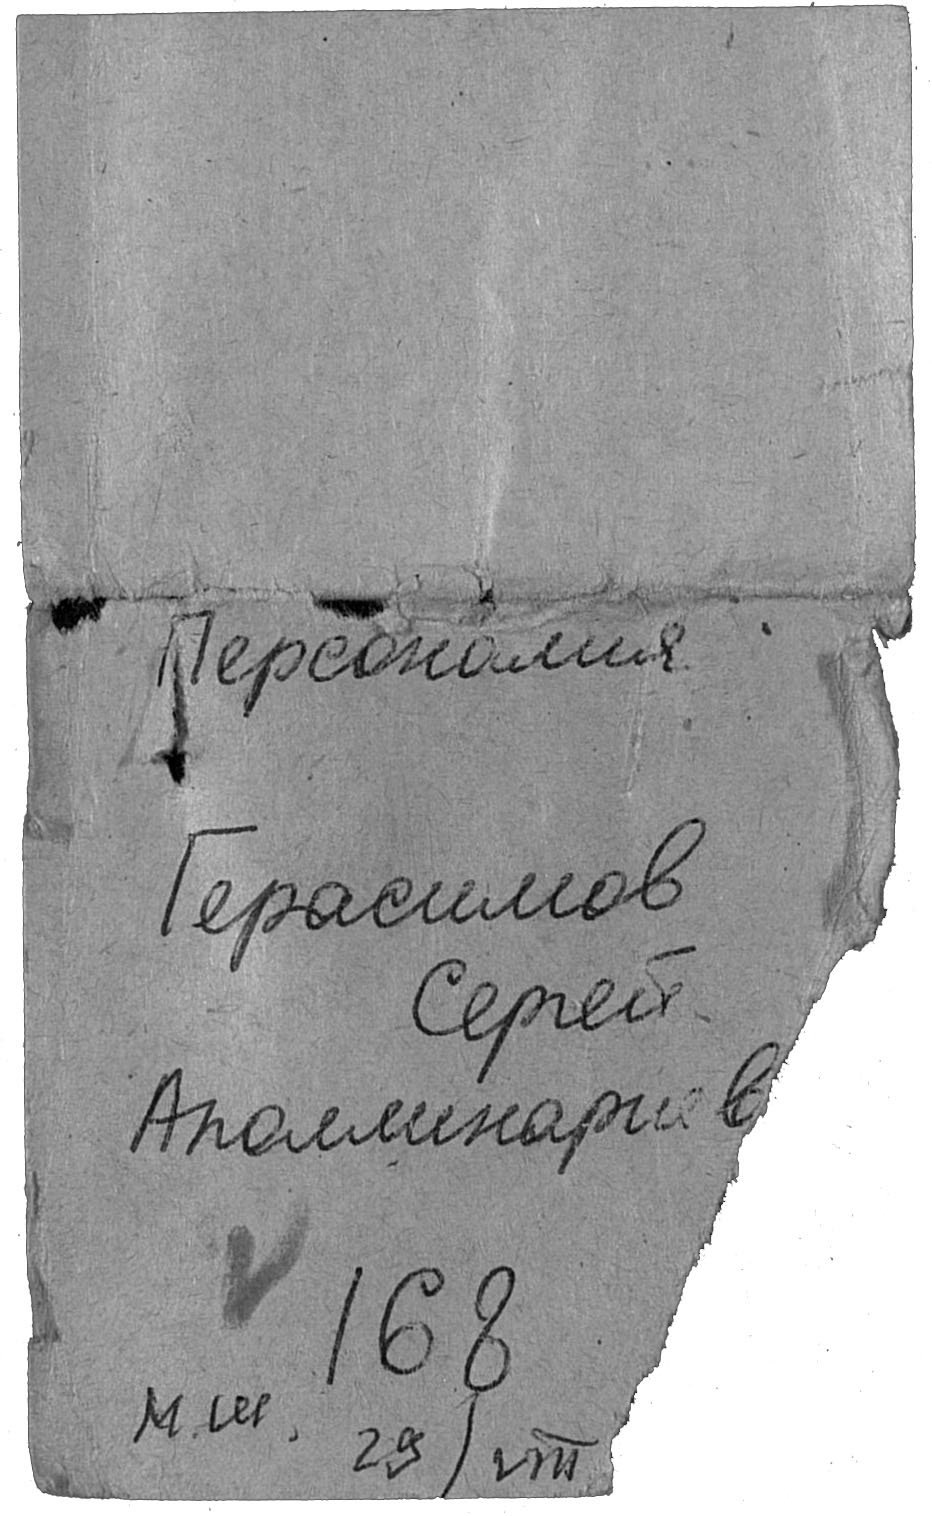 Персоналия
Герасимов
Сергей
Аполлинариев
168
М.Ш.
29/VIII